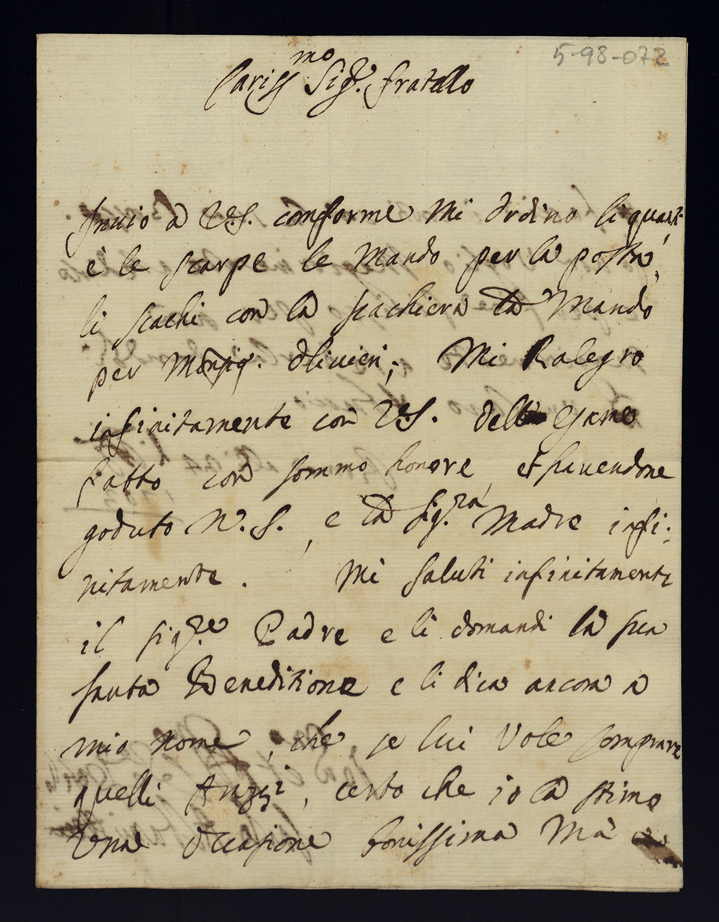 5-98-072
Cariss.mo Sig.r fratello
Invio à V.S. conforme mi ordino li quadri
è le scarpe le Mando per la posta,
li scachi con la scachiera la Mando
per Monsig. Olivieri; Mi Ralegro
infinitamente con V.S. dell' Esame
fatto con sommo honore, et havendone
goduto N.S., e la sig.ra Madre infi:
nitamente. Mi saluti infinitamente
il sig.re Padre e li domandi la sua
santa Beneditione e li dica ancora a
mio nome, che se lui Vole comprare
quelli , certo che io la stimo
Una Occasione bonissima Mà